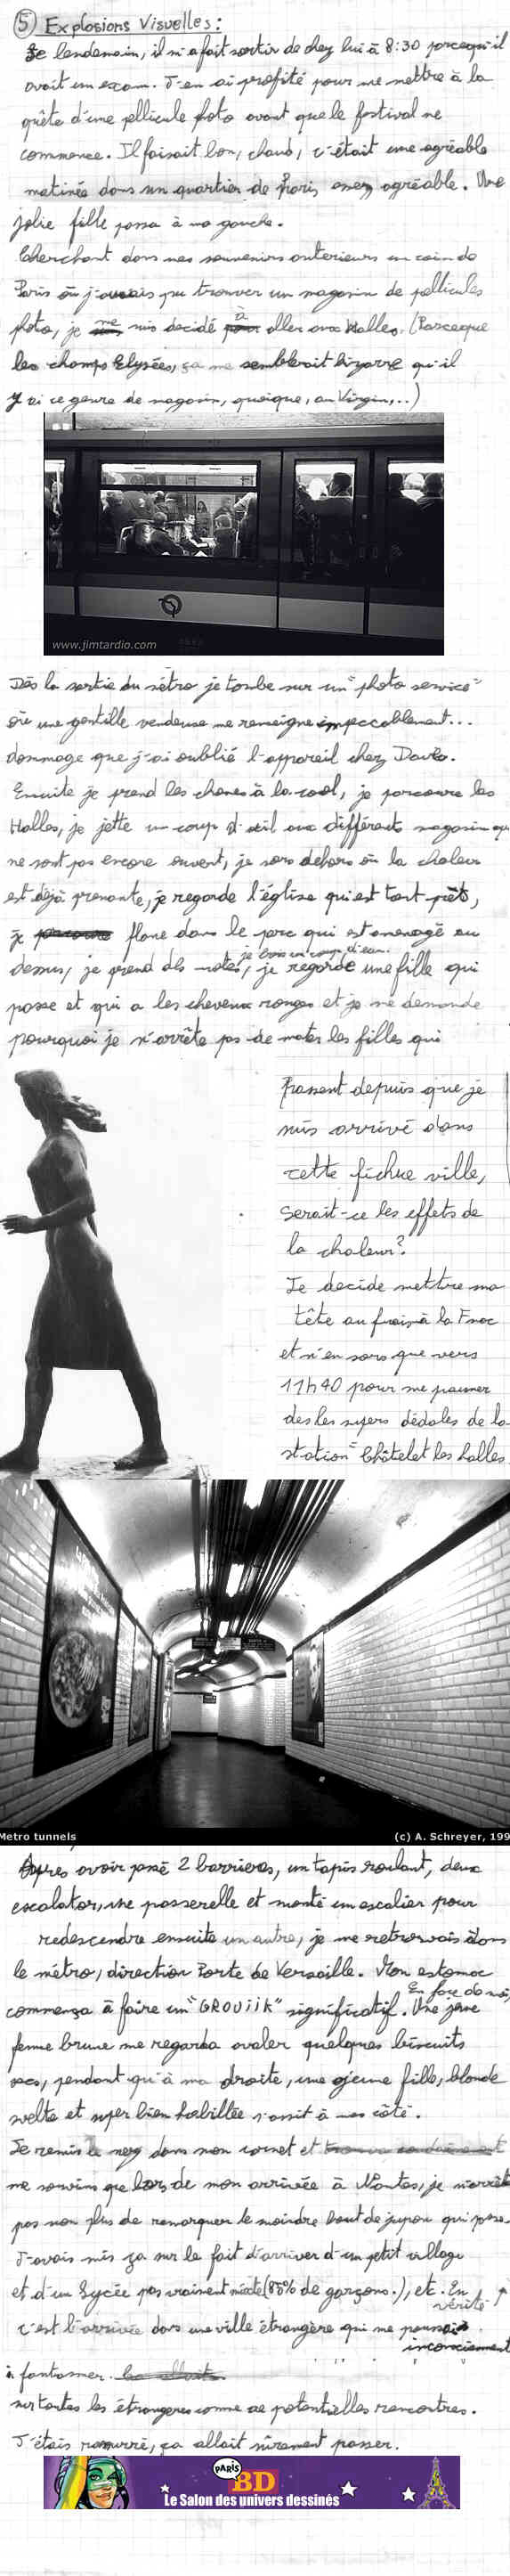 ⑤ Explosions Visuelles :
Le lendemain, il m'a fait sortir de chez lui à 8:30 parcequ'il
avait un exam. J'en ai profité pour me mettre à la
quête d'une pellicule photo avant que le festival ne
commence. Il faisait bon, chaud, c'était une agréable
matinée dans un quartier de Paris assez agréable. Une
jolie fille passa à ma gauche.
Cherchant dans mes souvenirs anterieurs un coin de
Paris où j'aurais pu trouver un magasin de pellicules
photo, je me suis decidé à aller aux Halles. (Parceque
les champs Elysées, ça me semblerait bizarre qu'il
y ai ce genre de magasin, quoique, au Virgin,..)
www.jimtardio.com
Dès la sortie du métro je tombe sur un "photo service"
où une gentille vendeuse me renseigne impeccablement...
dommage que j'ai oublié l'appareil chez Davko.
Ensuite je prend les choses à la cool, je parcoure les
Halles, je jette un coup d'œil aux différents magasin qui
ne sont pas encore ouvert, je sors dehors où la chaleur
est déjà prenante, je regarde l'église qui est tout près,
je flane dans le parc qui est amenagé au
dessus, je prend des notes, je bois un coup d'eau. je regarde une fille qui
passe et qui a les cheveux rouges et je me demande
pourquoi je n'arrête pas de mater les filles qui
passent depuis que je
suis arrivé dans
cette fichue ville,
Serait-ce les effets de
la chaleur?
Je decide mettre ma
tête au frais à la Fnac
et n'en sors que vers
11h40 pour me paumer
des les supers dédales de la
station "Châtelet les halles
Metro tunnels
(c) A. Schreyer, 199
Apres avoir passé 2 barrieres, un tapis roulant, deux
escalator, une passerelle et monté un escalier pour
redescendre ensuite un autre, je me retrouvais dans
le métro, direction Porte de Versaille. Mon estomac
commença à faire un "GROUiiK" significatif. En face de moi, Une jeune
femme brune me regarda avaler quelques biscuits
secs, pendant qu'à ma droite, une jeune fille, blonde
svelte et super bien habillée s'assit à mes côté.
Je remis le nez dans mon carnet et
me souvins que lors de mon arrivée à Nantes, je n'arrêt
pas non plus de remarquer le moindre bout de jupon qui passe.
J'avais mis ça sur le fait d'arriver d'un petit village
et d'un Lycée pas vraiment mixte (85% de garçons.), etc. En
vérité
c'est l'arrivée dans une ville étrangère qui me poussait
inconsciemment
à fantasmer
sur toutes les étrangeres comme de potentielles rencontres.
J'étais rassurré, ça allait sûrement passer.
PARIS
BD
Le Salon des univers dessinés